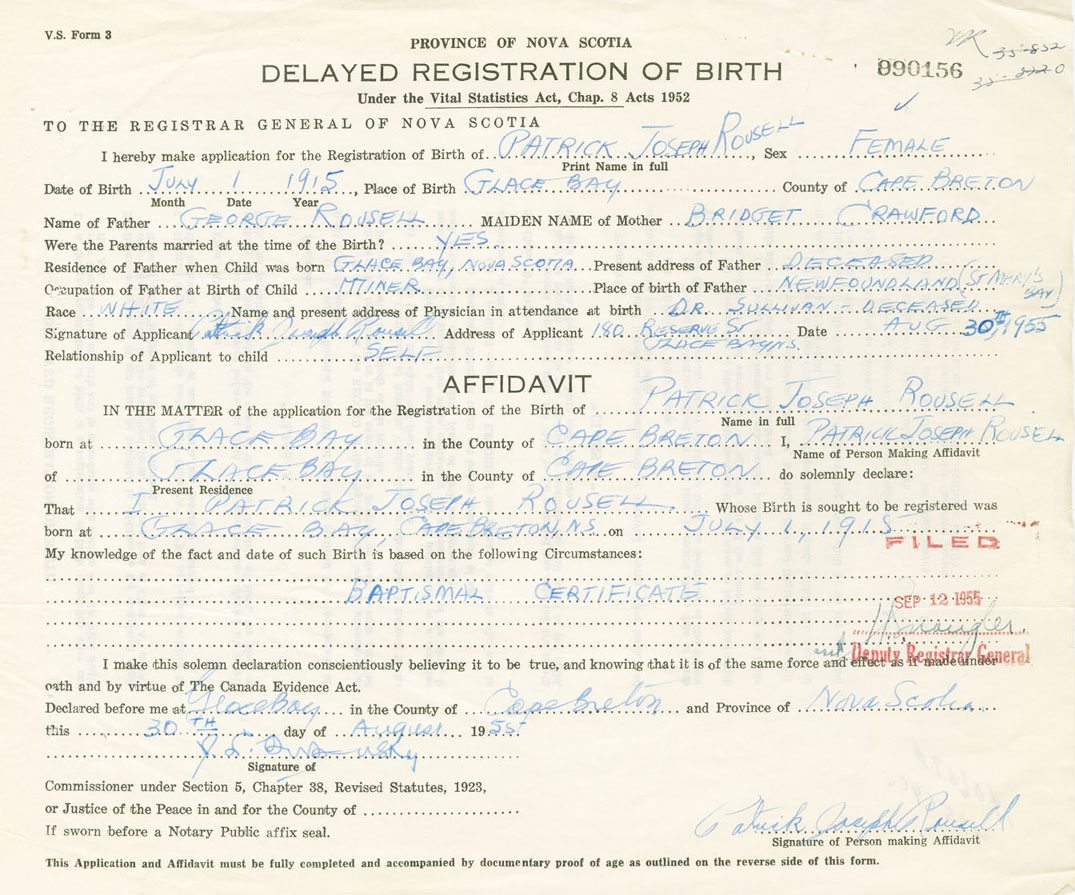 V.S. Form 3
VR 35-852
PROVINCE OF NOVA SCOTIA
DELAYED REGISTRATION OF BIRTH 990156
Under the Vital Statistics Act, Chap. 8 Acts 1952
TO THE REGISTRAR GENERAL OF NOVA SCOTIA
I hereby make application for the Registration of Birth of PATRICK JOSEPH ROUSELL, Sex FEMALE
Print Name in full
Date of Birth JULY 1 1915, Place of Birth GLACE BAY County of CAPE BRETON
Month Date Year
Name of Father GEORGE ROUSELL MAIDEN NAME of Mother BRIDGET CRAWFORD
Were the Parents married at the time of the Birth? YES
Residence of Father when Child was born GLACE BAY, NOVA SCOTIA Present address of Father DECEASED
Occupation of Father at Birth of Child MINER Place of birth of Father NEWFOUNDLAND (ST MERY'S BAY)
Race WHITE Name and present address of Physician in attendance at birth DR. SULLIVAN - DECEASED
Signature of Applicant Patrick Joseph Rousell Address of Applicant 180 RESERVE ST Date AUG 30TH, 1955
GLACE BAY N.S.
Relationship of Applicant to child SELF
AFFIDAVIT
IN THE MATTER of the application for the Registration of the Birth of PATRICK JOSEPH ROUSELL
Name in full
born at GLACE BAY in the County of CAPE BRETON I, PATRICK JOSEPH ROUSELL
Name of Person Making Affidavit
of GLACE BAY in the County of CAPE BRETON do solemnly declare:
Present Residence
That I PATRICK JOSEPH ROUSELL, Whose Birth is sought to be registered was
born at GLACE BAY, CAPE BRETON, N.S. on JULY 1, 1915
FILED
My knowledge of the fact and date of such Birth is based on the following Circumstances:
BAPTISMAL CERTIFICATE
SEP 12 1955
Deputy Registrar General
I make this solemn declaration conscientiously believing it to be true, and knowing that it is of the same force and effect as if made under
oath and by virtue of The Canada Evidence Act.
Declared before me at Glace Bay in the County of Cape Breton and Province of Nova Scotia
this 30TH day of August 1955
Signature of
Commissioner under Section 5, Chapter 38, Revised Statutes, 1923,
or Justice of the Peace in and for the County of
If sworn before a Notary Public affix seal.
Patrick Joseph Rousell
Signature of Person making Affidavit
This Application and Affidavit must be fully completed and accompanied by documentary proof of age as outlined on the reverse side of this form.